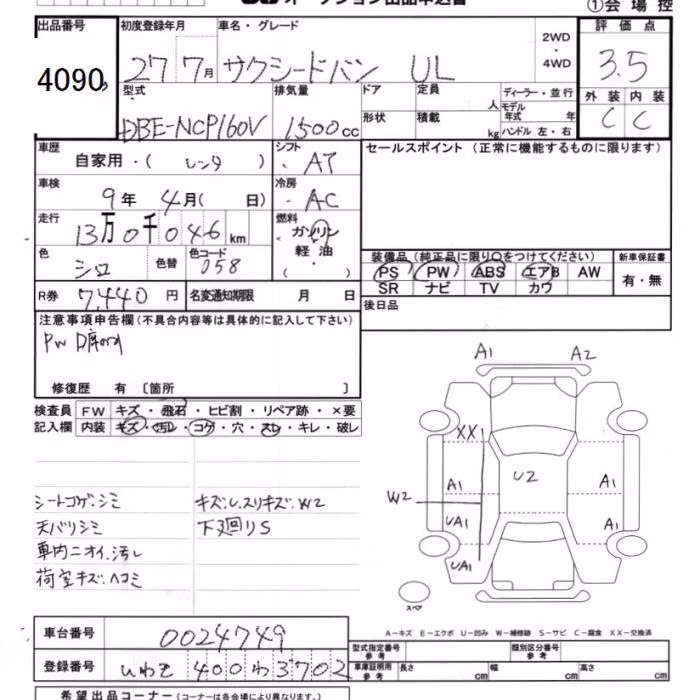 オークション出品申込書
①会場控
出品番号
4090
初度登録年月
27 7月
車名・グレード
サクシードバン UL
2WD
・
4WD
評価点
3.5
外装 内装
C C
型式
DBE-NCP160V
排気量
1500cc
ドア
定員
人
ディーラー・並行
モデル年式 年
形状
積載
kg
ハンドル 左・右
車歴
自家用・( レンタ )
シフト
AT
セールスポイント (正常に機能するものに限ります)
車検
9年 4月( 日)
冷房
AC
走行
13万0千046km
燃料
ガソリン
軽油
・
( )
色
シロ
色替
色コード
058
R券
7,440円
名変通知期限 月 日
装備品(純正品に限り○をつけてください)
新車保証書
PS PW ABS エアB AW
SR ナビ TV カワ
有・無
後日品
注意事項申告欄(不具合内容等は具体的に記入して下さい)
修復歴 有 〔箇所 〕
検査員 FW キズ・飛石・ヒビ割・リペア跡・×要
記入欄 内装 キズ・汚レ・コゲ・穴・スレ・キレ・破レ
シートコゲ.シミ
天バリシミ
車内ニオイ.汚レ
荷室キズ.ヘコミ
キズ.U.スリキズ.W2
下廻りS
A1 A2
XX
U2
A1 A1
W2
UA1 A1
UA1
スペア
A-キズ E-エクボ U-凹み W-補修跡 S-サビ C-腐食 XX-交換済
車台番号
0024749
登録番号
いわき 400わ3702
型式指定番号
参考
類別区分番号
参考
車庫証明用
参考
長さ cm
幅 cm
高さ cm
希望出品コーナー(コーナーは各会場により異なります。)